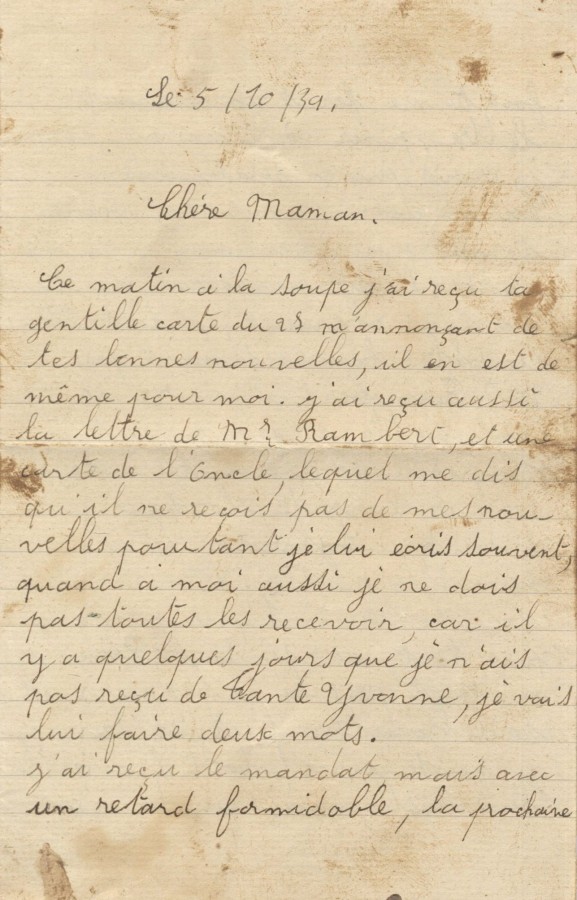 Le 5/10/39.
Chère Maman.
Ce matin a la soupe j'ai reçu ta
gentille carte du m'annonçant de
tes bonnes nouvelles, il en est de
même pour moi. j'ai reçu aussi
la lettre de Mr Rambert, et une
carte de l'Oncle, lequel me dis
qu'il ne reçois pas de mes nou-
velles pourtant je lui écris souvent,
quand a moi aussi je ne dois
pas toutes les recevoir, car il
y a quelques jours que je n'ais
pas reçu de Tante Yvonne, je vais
lui faire deux mots.
j'ai reçu le mandat mais avec
un retard formidoble, la prochaine